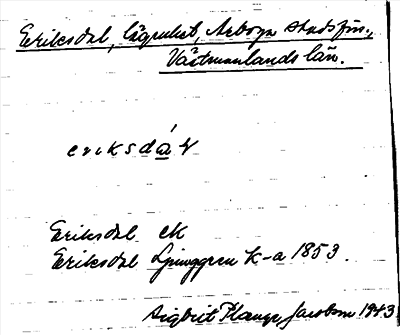 Eriksdal, lägenhet, Arboga stadsförs.,
Västmanlands län.
eriksdál
Eriksdal ek
Eriksdal Ljunggren k-a 1853.
Sigbrit Plænge Jacobson 1943